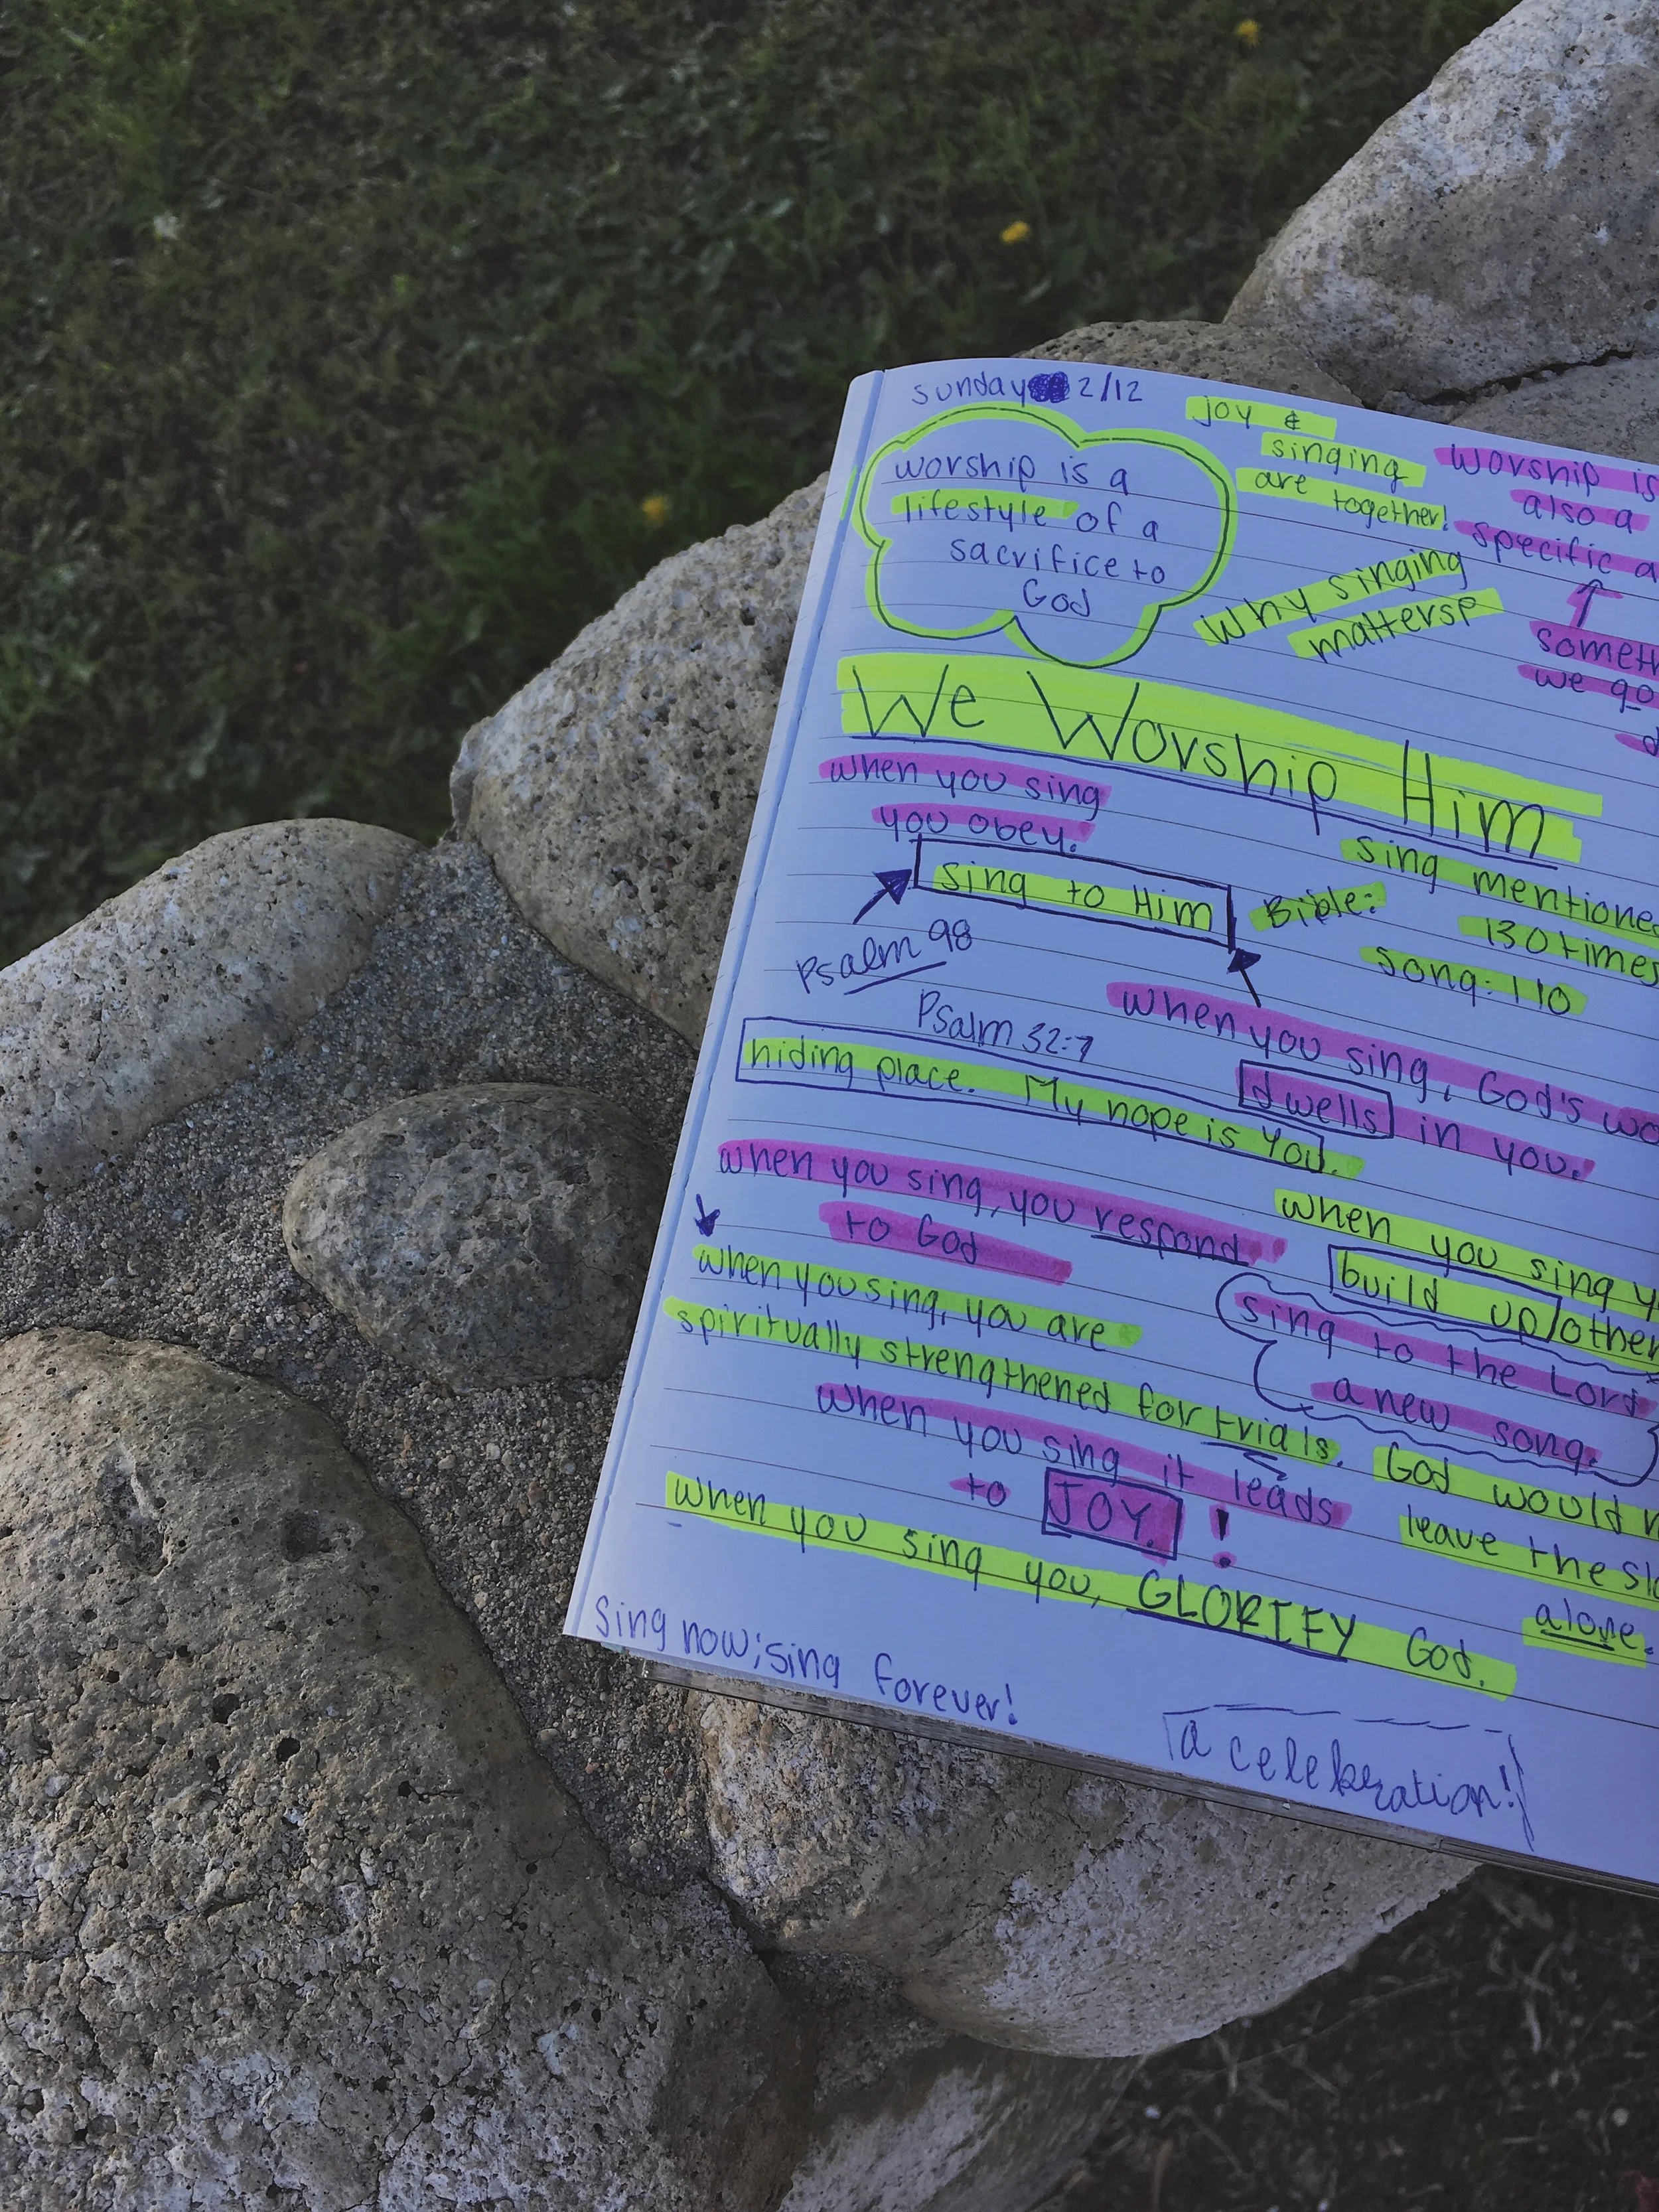 sunday 2/12
worship is a
lifestyle of a
sacrifice to
God
joy &
singing
are together!
why singing
matters
worship is
also a
specific a
↑
someth
we go
d
We Worship Him
when you sing
you obey.
sing to Him
Psalm 98
Bible:
sing mentione
130 times
song: 110
when you sing, God's wo
dwells in you.
Psalm 32:7
hiding place. My hope is You.
when you sing, you respond
to God
when you sing y
build up other
when you sing, you are
spiritually strengthened for trials.
sing to the Lord
a new song.
when you sing it leads
to JOY. !
God would n
leave the
alone.
when you sing you, GLORIFY God.
Sing now; sing forever!
a celebration!